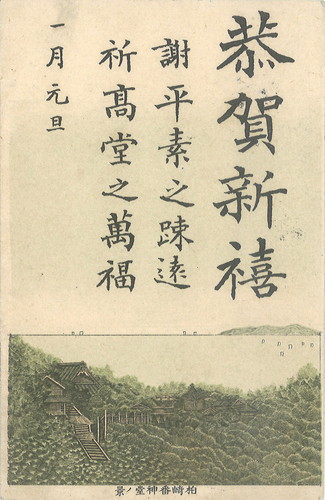 恭賀新禧
謝平素之疎遠
祈髙堂之萬福
一月元旦
柏崎番神堂ノ景